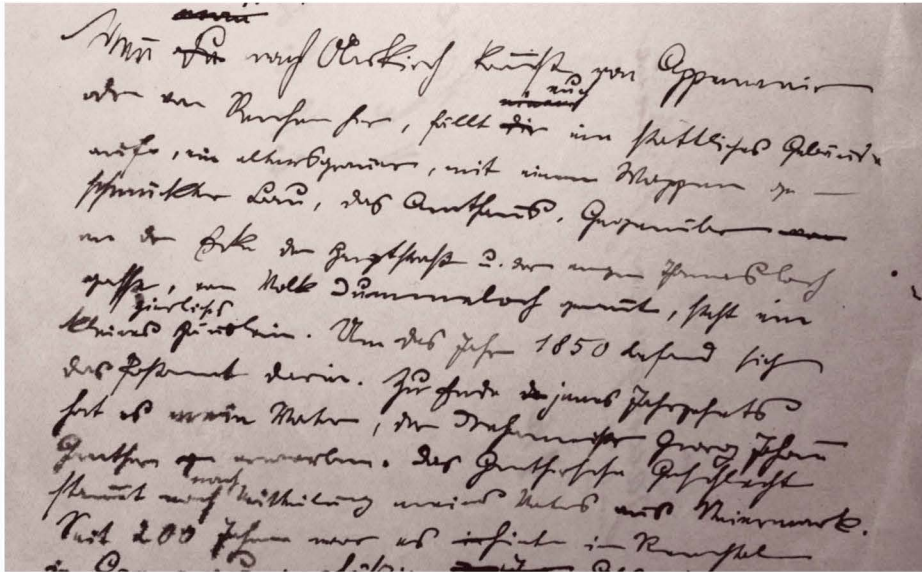 Wenn nach Oberkirch kommst von Appenweier
oder von Renchen her, fällt euch ein stattliches Gebäude
aufs, ein altersgrauer, mit einem Wappen ge-
schmückter Bau, das Amthaus. Gegenüber
an der Ecke der Hauptstraße u. der engen
gasse, vom Volk Dummeloch genannt, steht ein
kleines zierliches Häuslein. Um das Jahr 1850 befand sich
das Postamt darin. Zu Ende jenes Jahrzehnts
hat es mein Vater, der Georg Johann
Ganther erworben. Das Ganthersche Geschlecht
stammt nach Mittheilung meines Vaters aus
Seit 200 Jahren war es im Renchtal